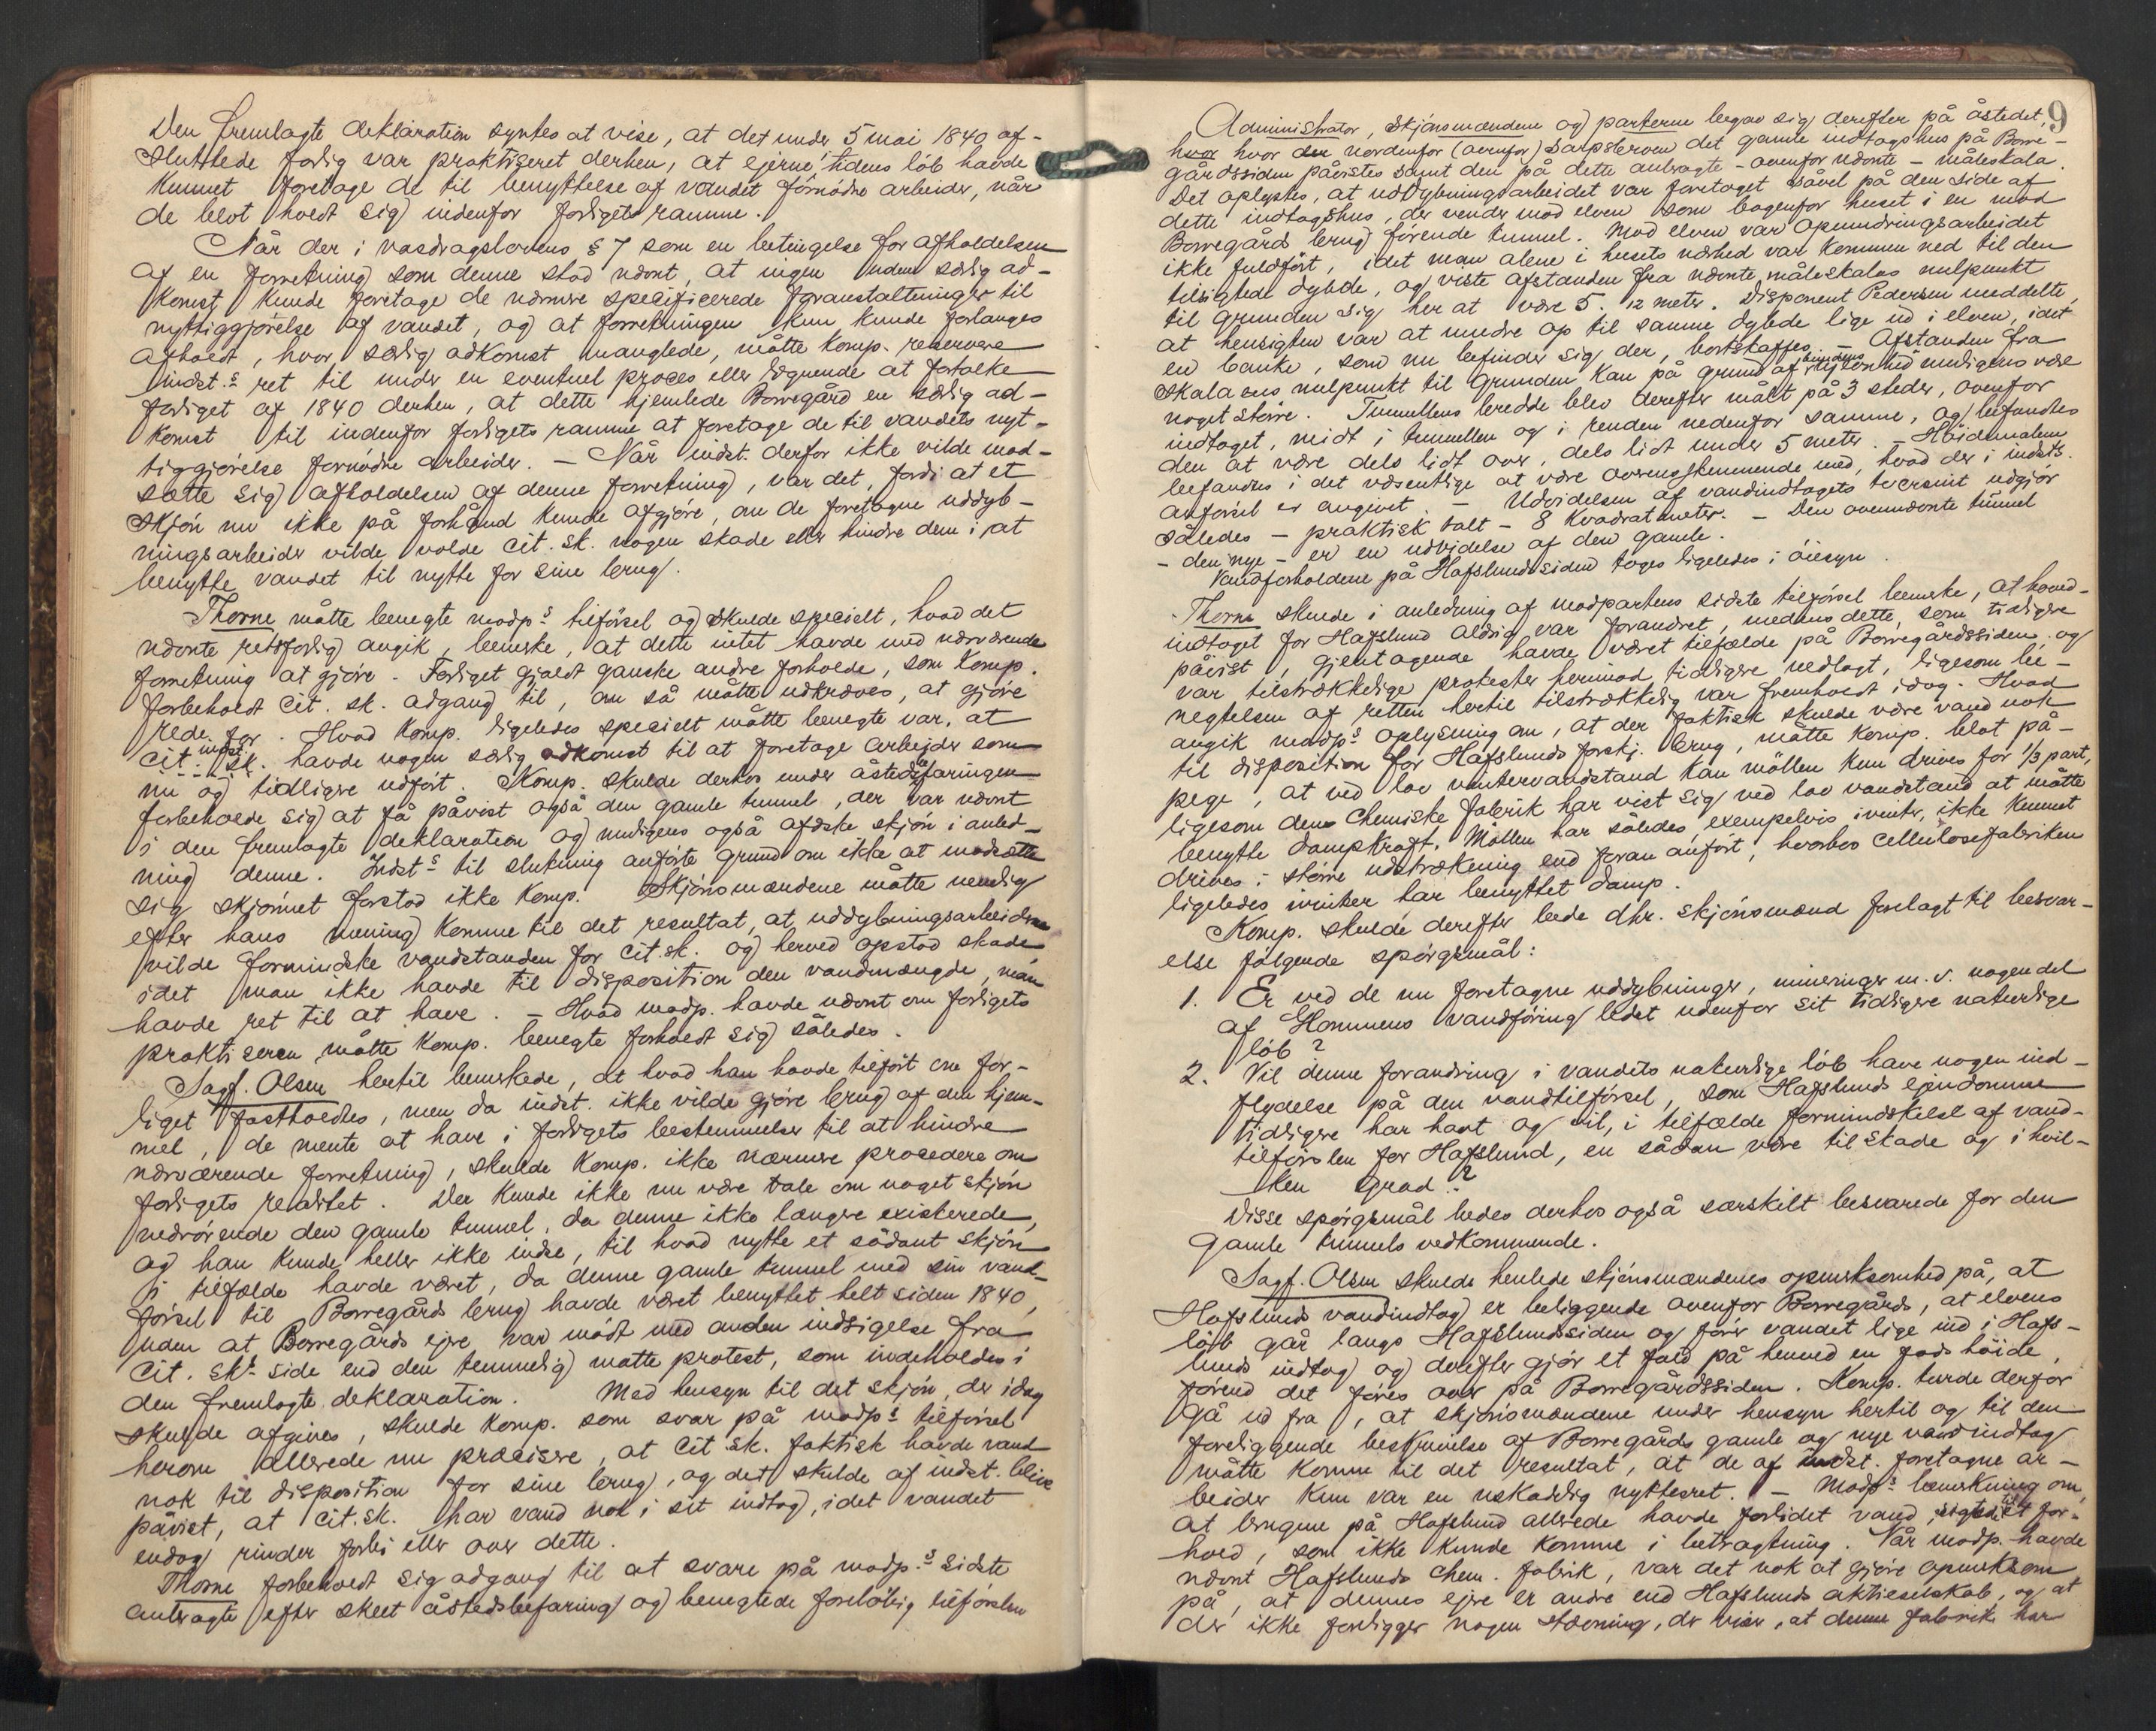 Den fremlagte deklaration syntes at vise, at det under 5 mai 1840 af-
sluttede forlig var praktiseret derhen, at ejerne i tidens løb havde
kunnet foretage de til benyttelse af vandet fornødne arbeider, når
de blot holdt sig indenfor forligets ramme.
Når der i vasdragslovens § 7 som en betingelse for afholdelsen
af en forretning som denne stod nævnt, at ingen uden særlig ad-
komst kunde foretage de nærmere specificerede foranstaltninger til
nyttiggjørelse af vandet, og at forretningen kun kunde forlanges
afholdt, hvor særlig adkomst manglede, måtte komp. reservere
indst.s ret til under en eventuel proces eller lignende at fortolke
forliget af 1840 derhen, at dette hjemlede Borregård en særlig ad-
komst til indenfor forligets ramme at foretage de til vandets nyt-
tiggjørelse fornødne arbeider. – Når indst. derfor ikke vilde mod-
sætte sig afholdelsen af denne forretning, var det, fordi at et
skjøn nu ikke på forhånd kunde afgjøre, om de foretagne uddyb-
ningsarbeider vilde volde cit. sk. nogen skade eller hindre dem i at
benytte vandet til nytte for sine brug.
Thorne måtte benegte modp.s tilførsel og skulde specielt, hvad det
nævnte retsforlig angik, bemerke, at dette intet havde med nærværende
forretning at gjøre. Forliget gjaldt ganske andre forholde, som komp.
forbeholdt cit. sk. adgang til, om så måtte udkræves, at gjøre
rede for. Hvad komp. ligeledes specielt måtte benegte var, at
cit. sk. indst. havde nogen særlig adkomst til at foretage arbejder som
nu og tidligere udført. Komp. skulde derhos under åstedsbefaringen
forbeholde sig at få påvist også den gamle tunnel, der var nævnt
i den fremlagte deklaration og muligens også afæske skjøn i anled-
ning denne. Indst.s til slutning anførte grund om ikke at modsætte
sig skjønnet forstod ikke komp. Skjønsmændene måtte nemlig
efter hans mening komme til det resultat, at uddybningsarbeiderne
vilde formindske vandstanden for cit. sk. og herved opstod skade
idet man ikke havde til disposition den vandmængde, man
havde ret til at have. – Hvad modp. havde nævnt om forligets
praktiseren måtte komp. benegte forholdt sig således.
Sagf. Olsen hertil bemerkede, at hvad han havde tilført om for-
liget fastholdtes, men da indst. ikke vilde gjøre brug af den hjem-
mel, de mente at have i forligets bestemmelser til at hindre
nærværende forretning, skulde komp. ikke nærmere procedere om
forligets realitet. Der kunde ikke nu være tale om noget skjøn
vedrørende den gamle tunnel, da denne ikke længre existerede,
og han kunde heller ikke indse, til hvad nytte et sådant skjøn
i tilfælde havde været, da denne gamle tunnel med sin vand-
førsel til Borregårds brug havde været benyttet helt siden 1840,
uden at Borregårds ejere var mødt med anden indsigelse fra
cit. sk.s side end den temmelig matte protest, som indeholdes i
den fremlagte deklaration. Med hensyn til det skjøn, der idag
skulde afgives, skulde komp. som svar på modp.s tilførsel
herom allerede nu præcisere, at cit. sk. faktisk havde vand
nok til disposition for sine brug, og det skulde af indst. blive
påvist, at cit. sk. har vand nok i sit indtag, idet vandet
endog rinder forbi eller over dette.
Thorne forbeholdt sig adgang til at svare på modp.s sidste
anbragte efter skeet åstedsbefaring og benegtede foreløbig tilførselen
9
Administrator, skjønsmændene og parterne begav sig derefter på åstedet,
hvor hvor der nordenfor (ovenfor) Sarpsbroen det gamle indtagshus på Borre-
gårdssiden påvistes samt den på dette anbragte – ovenfor nævnte – måleskala.
Det oplystes, at uddybningsarbeidet var foretaget såvel på den side af
dette indtagshus, der vender mod elven som bagenfor huset i en mod
Borregård brug førende tunnel. Mod elven var opmudringsarbeidet
ikke fuldført, idet man alene i husets nærhed var kommen ned til den
tilsigtede dybde, og viste afstanden fra nævnte måleskalas nulpunkt
til grunden sig her at være 5.12 meter. Disponent Pedersen meddelte,
at hensigten var at mudre op til samme dybde lige ud i elven, idet
en banke, som nu befinder sig der, bortskaffes. – Afstanden fra
skalaens nulpunkt til grunden kan på grund af bundens ujevnhed muligens være
noget større. Tunnellens bredde blev derefter målt på 3 steder, ovenfor
indtaget, midt i tunnellen og i renden nedenfor samme, og befandtes
den at være dels lidt over, dels lidt under 5 meter. – Høidemålene
befandtes i det væsentlige at være overensstemmende med, hvad der i indsts.
anførsel er angivet. – Udvidelsen af vandindtagets tversnit udgjør
således – praktisk talt – 8 kvadratmeter. – Den ovennævnte tunnel
– den nye – er en udvidelse af den gamle.
Vandforholdene på Hafslundssiden toges ligeledes i øiesyn.
Thorne skulde i anledning af modpartens sidste tilførsel bemerke, at hoved-
indtaget for Hafslund aldrig var forandret, medens dette, som tidligere
påvist, gjentagende havde været tilfælde på Borregårdssiden, og
var tilstrækkelige protester herimod tidligere nedlagt, ligesom be-
negtelsen af retten hertil tilstrækkelig var fremholdt idag. Hvad
angik modp.s oplysning om, at der faktisk skulde være vand nok
til disposition for Hafslunds forskj. brug, måtte komp. blot på-
pege, at ved lav vintervandstand kan møllen kun drives for 1/3 part,
ligesom den chemiske fabrik har vist sig ved lav vandstand at måtte
benytte dampkraft. Møllen har således exempelvis ivinter, ikke kunnet
drives i større udstrækning end foran anført, hvorhos cellulosefabriken
ligeledes ivinter har benyttet damp.
Komp. skulde derefter bede dhr. skjønsmænd forelagt til besvar-
else følgende spørgsmål:
1. Er ved de nu foretagne uddybninger, mineringer m.v. nogen del
af Glommens vandføring ledet udenfor sit tidligere naturlige
løb?
2. Vil denne forandring i vandets naturlige løb have nogen ind-
flydelse på den vandtilførsel, som Hafslunds ejendomme
tidligere har havt og vil, i tilfælde formindskelse af vand-
tilførselen for Hafslund, en sådan være til skade og i hvil-
ken grad?
Disse spørgsmål bedes derhos også særskilt besvarede for den
gamle tunnels vedkommende.
Sagf. Olsen skulde henlede skjønsmændenes opmerksomhed på, at
Hafslunds vandindtag er beliggende ovenfor Borregårds, at elvens
løb går langs Hafslundssiden og fører vandet lige ind i Hafs-
lunds indtag og derefter gjør et fald på henved en fods høide,
førend det føres over på Borregårdssiden. Komp. turde derfor
gå ud fra, at skjønsmændene under hensyn hertil og til den
foreliggende beskrivelse af Borregårds gamle og nye vandindtag
måtte komme til det resultat, at de af indst. foretagne ar-
beider kun var en uskadelig nytteret. – Modp.s bemerkning om,
at brugene på Hafslund allerede havde forlidet vand, sigted til et for-
hold, som ikke kunde komme i betragtning. Når modp. havde
nævnt Hafslunds chem. fabrik, var det nok at gjøre opmerksom
på, at dennes ejere er andre end Hafslunds aktieselskab, og at
der ikke foreligger nogen stævning, der viser, at denne fabrik har